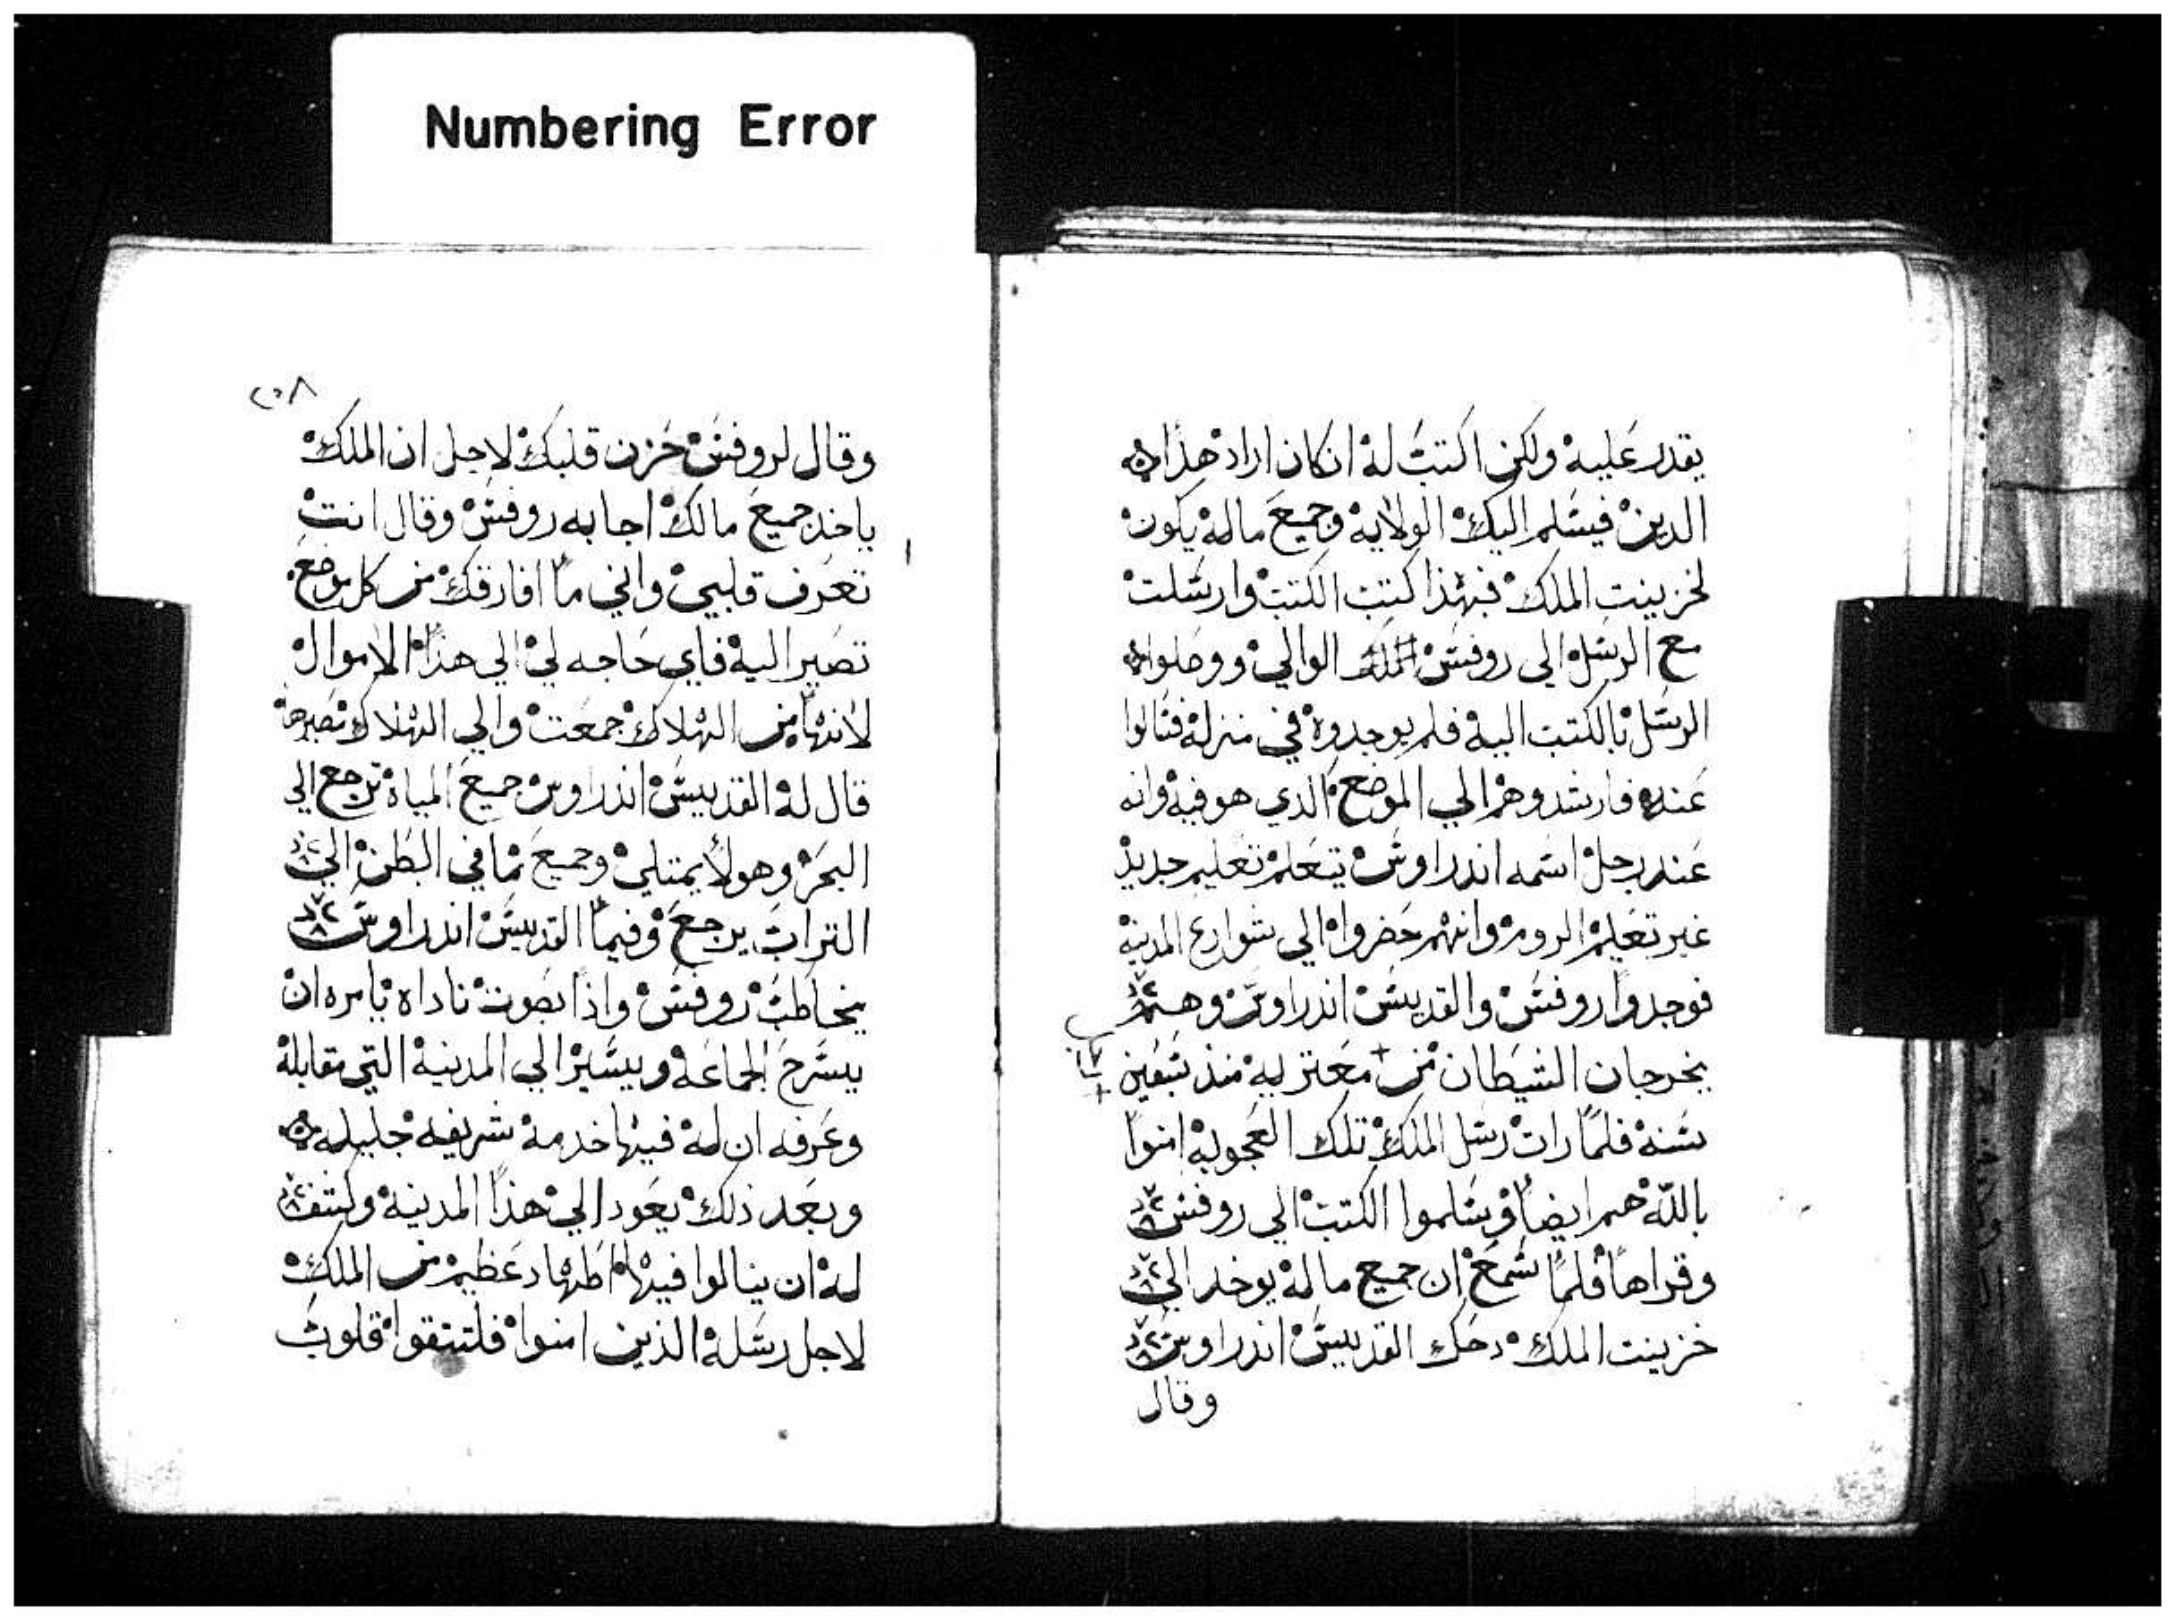 Numbering Error
يقدر عليه ولكن اكتب له ان كان اراد هذا
الدين فيسلم اليك الولايه وجميع ماله يكون
لخزينت الملك فبهذا كتب الكتب وارسلت
مع الرسل الى روفس الوالي ووصلوا
الرسل بالكتب اليه فلم يوجدوه في منزله فسالوا
عنه فارشدوهم الي الموضع الدي هو فيه وانه
عند رجل اسمه اندراوس يتعلم تعليم جديد
غير تعليم الروم وانهم حضروا الي شوارع المدينه
فوجدوا روفس والقديس اندراوس وهم
يخرجان الشيطان من معتريه منذ
سنه فلما رات رسل الملك تلك العجوبه امنوا
بالله هم ايضا وسلموا الكتب الي روفس
وقراها فلما سمع ان جميع ماله يوخد الي
خزينت الملك دحك القديس اندراوس
وقال
٢٥٨
وقال لروفس حزن قلبك لاجل ان الملك
ياخد جميع مالك اجابه روفس وقال انت
تعرف قلبي واني ما افارقك من كل موضع
تصير اليه فاي حاجه لي الي هذا الاموال
لانها من الهلاك جمعت والي الهلاك تصيرها
قال له القديس اندراوس جميع المياه ترجع الي
البحر وهو لا يمتلي وجميع ما في البطن الي
التراب يرجع وفيما القديس اندراوس
يخاطب روفس واذا بصوت ناداه يامره ان
يسرح الجماعه ويسير الي المدينه التي مقابله
وعرفه ان له فيها خدمه شريفه جليله
وبعد ذلك يعود الي هذا المدينه وكشف
له ان ينالوا فيها اطهاد عظيم من الملك
لاجل رسله الذين امنوا فلتتقوا قلوب